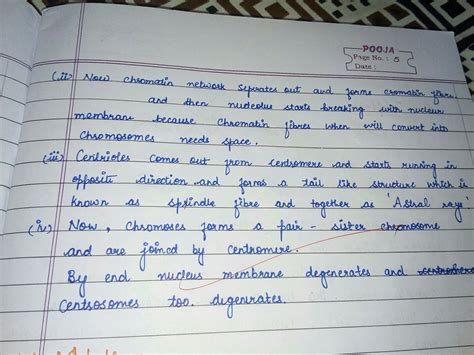 POOJA
Page No. : 5
Date :
(ii) Now chromatin network seprates out and forms cromatin fibre
and then nucleolus starts breaking with nuclear
membrane because chromatin fibres when will convert into
chromosomes needs space.
(iii) Centrioles comes out from centromere and starts running in
opposite direction and forms a tail like structure which is
known as sprindle fibre and together as 'Astral rays'
(iv) Now, chromoses forms a pair - sister chromosome
and are joined by centromere.
By end nucleus membrane degenerates and
centsosomes too degenerates.